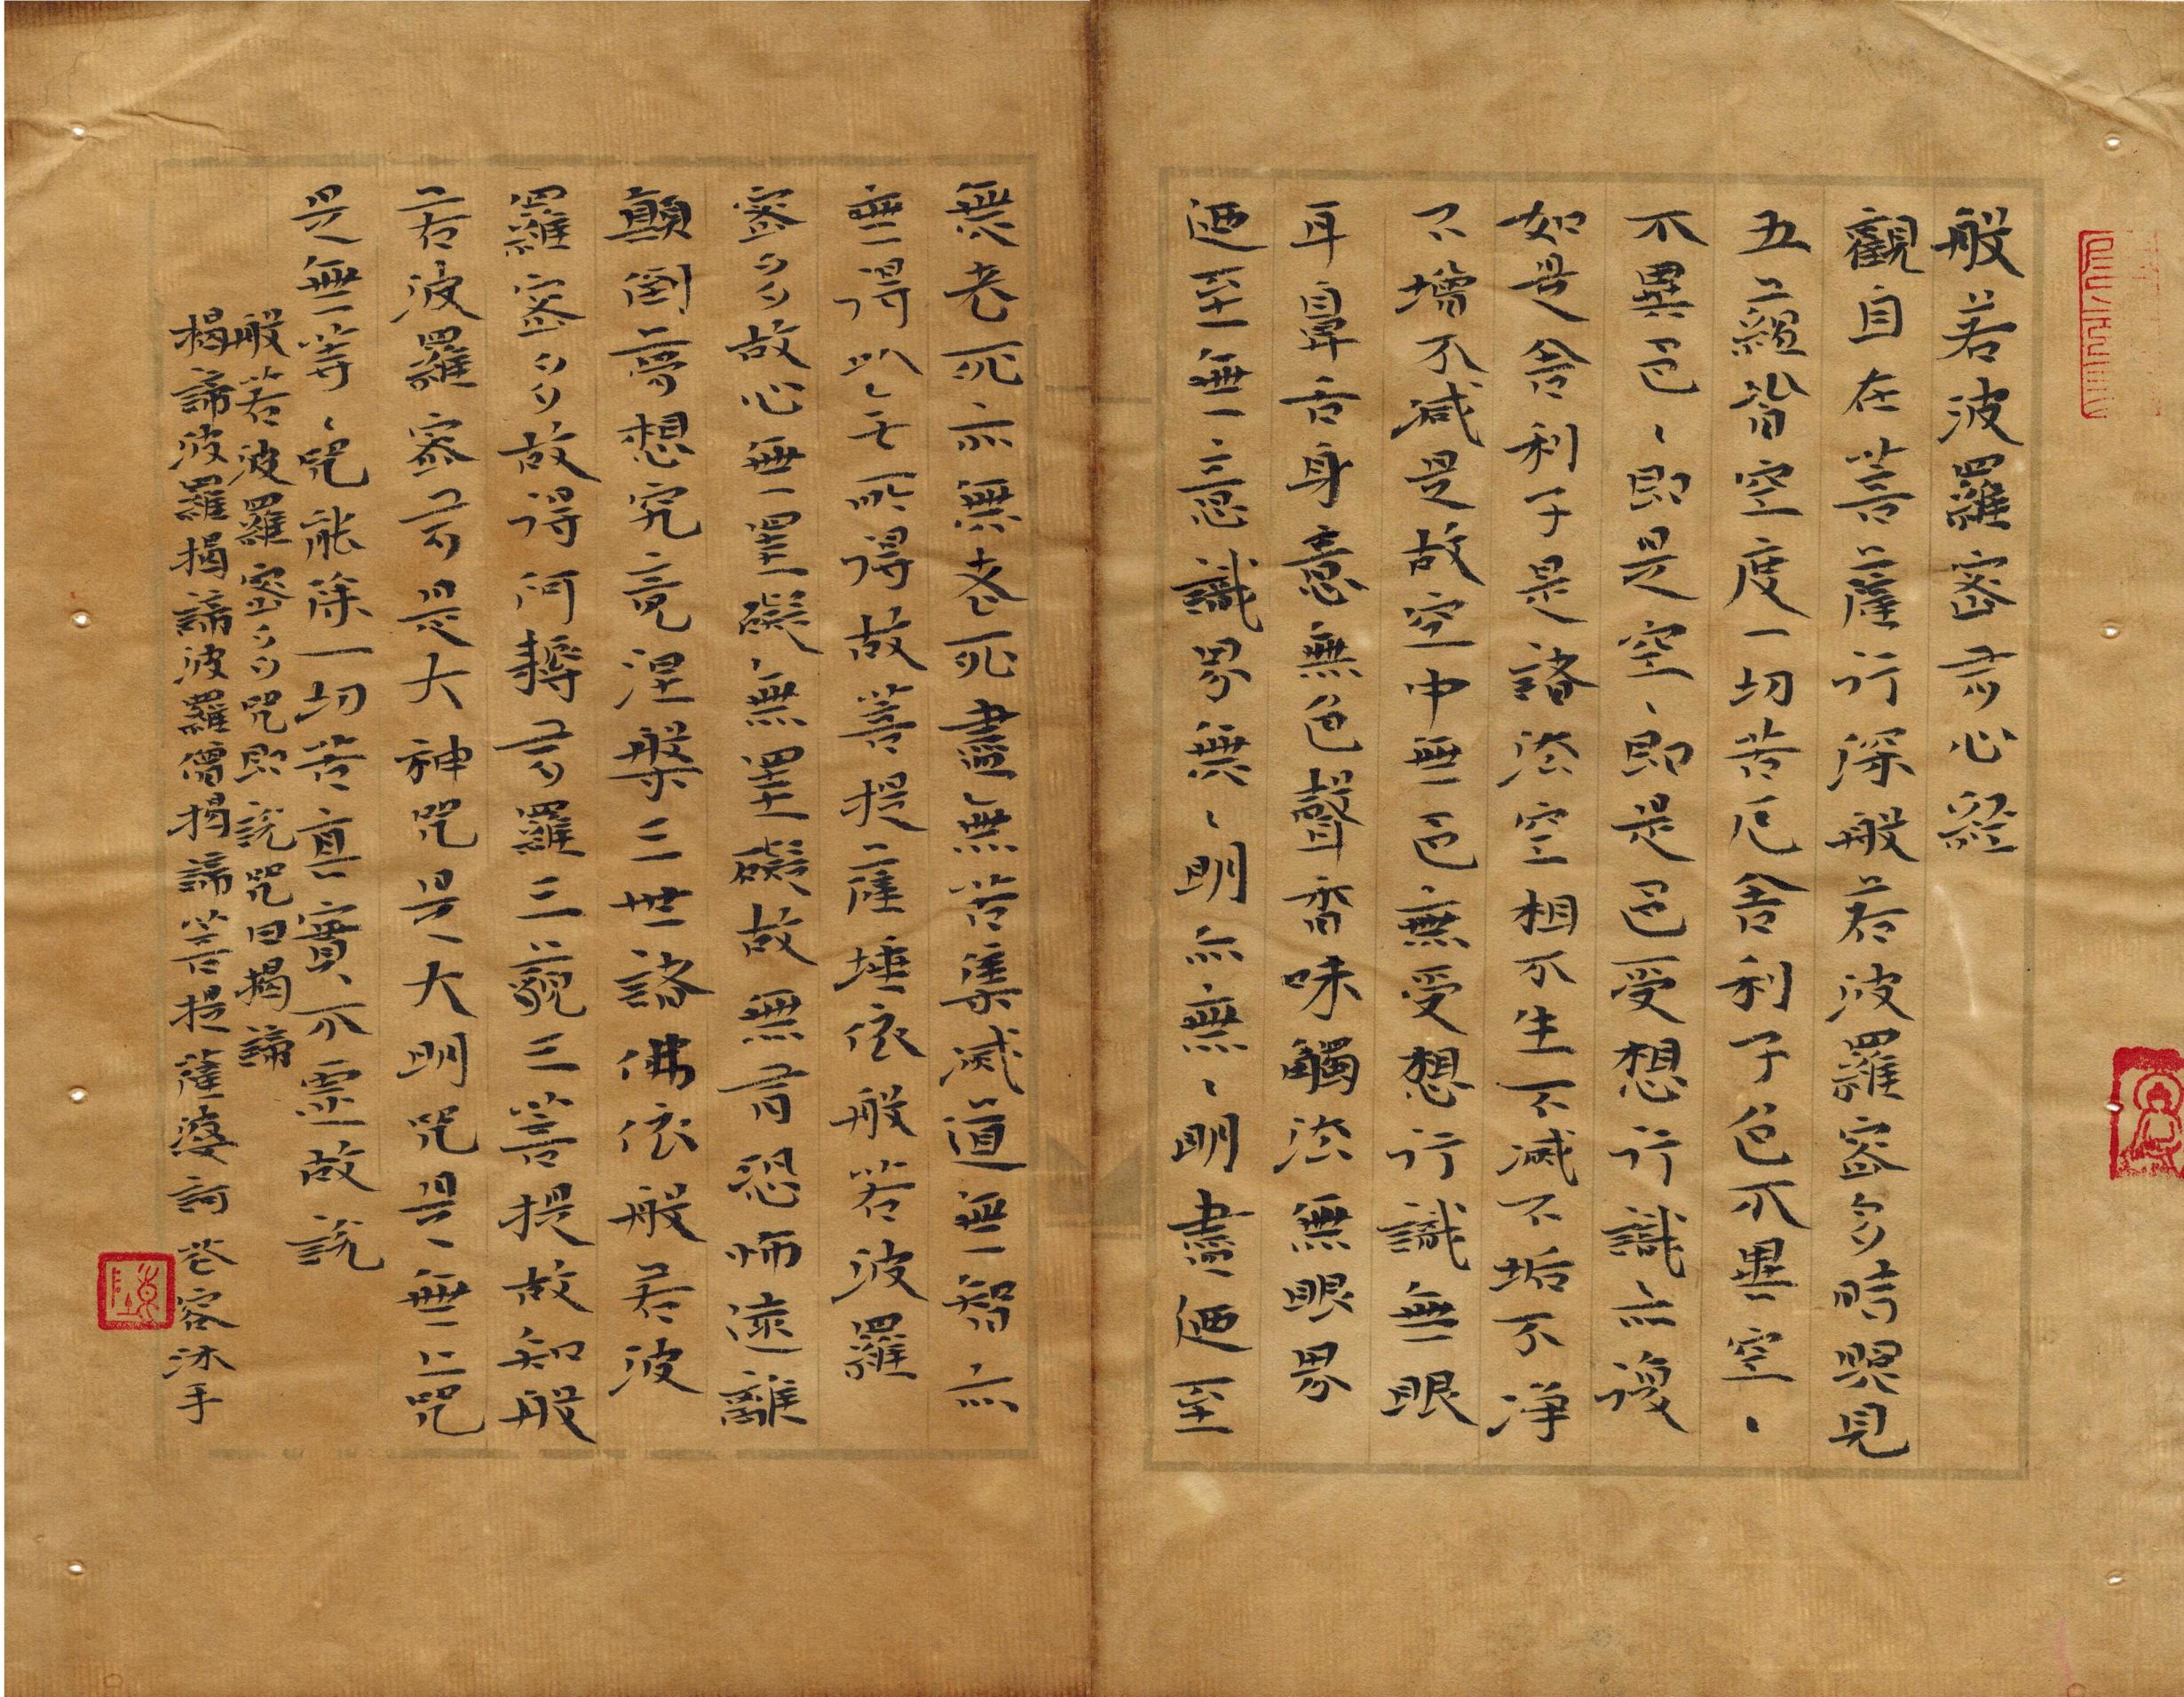 般若波羅密多心經
觀自在菩薩行深般若波羅密多時照見
五蘊皆空度一切苦厄舍利子色不異空、
不異色、即是空、即是色受想行識亦複
如是舍利子是諸法空相不生不滅不垢不淨
不增不減是故空中無色無受想行識無眼
耳鼻舌身意無色聲香味觸法無眼界
迺至無意識界無、明亦無、明盡迺至
無老死亦無老死盡無苦集滅道無智亦
無得以无所得故菩提薩埵依般若波羅
密多故心無罣礙、無罣礙故無有恐怖遠離
顛倒夢想究竟涅槃三世諸佛依般若波
羅密多故得阿耨多羅三藐三菩提故知般
若波羅密多是大神咒是大明咒是無上咒
是無等、咒能除一切苦真實不虛故說
般若波羅密多咒即說咒曰揭諦
揭諦波羅揭諦波羅僧揭諦菩提薩婆訶 容沐手